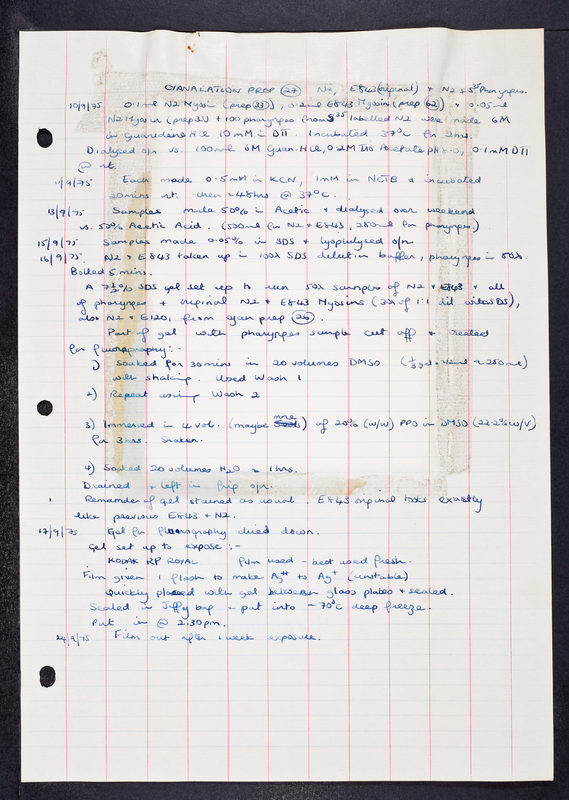 CYANALATION PREP (27) N2, E843 (original) + N2 + S35 Pharynges.
10/9/75 0.1ml N2 Myosin (prep 23), 0.2ml E843 Myosin (prep 62) + 0.05ml
N2 Myosin (prep 23) + 100 pharynges from S35 labelled N2 were made 6M
in Guanidene HCl 10mM in DTT. Incubated 37°C for 2hrs.
Dialysed o/n vs. 100ml 6M Guan. HCl, 0.2M Tris Acetate pH 8.0, 0.1mM DTT
@ rt.
11/9/75 Each made 0.5mM in KCN, 1mM in NCTB & incubated
20mins rt. then ~48hrs @ 37°C.
13/9/75 Samples made 50% in Acetic & dialysed over weekend
vs. 50% Acetic Acid. (500ml for N2 + E843, 250ml for pharynges)
15/9/75 Samples made 0.05% in SDS & lyophilysed o/n.
16/9/75 N2 + E843 taken up in 100λ SDS dilution buffer, pharynges in 50λ.
Boiled 5 mins.
A 7½% SDS gel set up to run 50λ samples of N2 + E843 + all
of pharynges + original N2 + E843 Myosins (3λ of 1:1 dil with SDS),
also N2 + E1201 from cyan prep (26).
Part of gel with pharynges sample cut off & treated
for fluorography:-
1) Soaked for 30mins in 20 volumes DMSO
with shaking. Used Wash 1
2) Repeat using Wash 2
3) Immersed in 4 vol. (maybe more) of 20% (w/w) PPO in DMSO (22.2% w/v)
for 3hrs. Shaken.
4) Soaked 20 volumes H2O ~ 1hrs.
Drained & left in frig o/n.
Remainder of gel stained as usual. E843 original looks exactly
like previous E843 + N2.
17/9/75 Gel for fluorography dried down.
Gel set up to expose :-
KODAK RP ROYAL film used - best used fresh.
Film given 1 flash to make Ag++ to Ag+ (unstable)
Quickly placed with gel between glass plates & sealed.
Sealed in Jiffy bag & put into -70°C deep freeze.
Put in @ 2.30pm.
24/9/75 Film out after 1 week exposure.